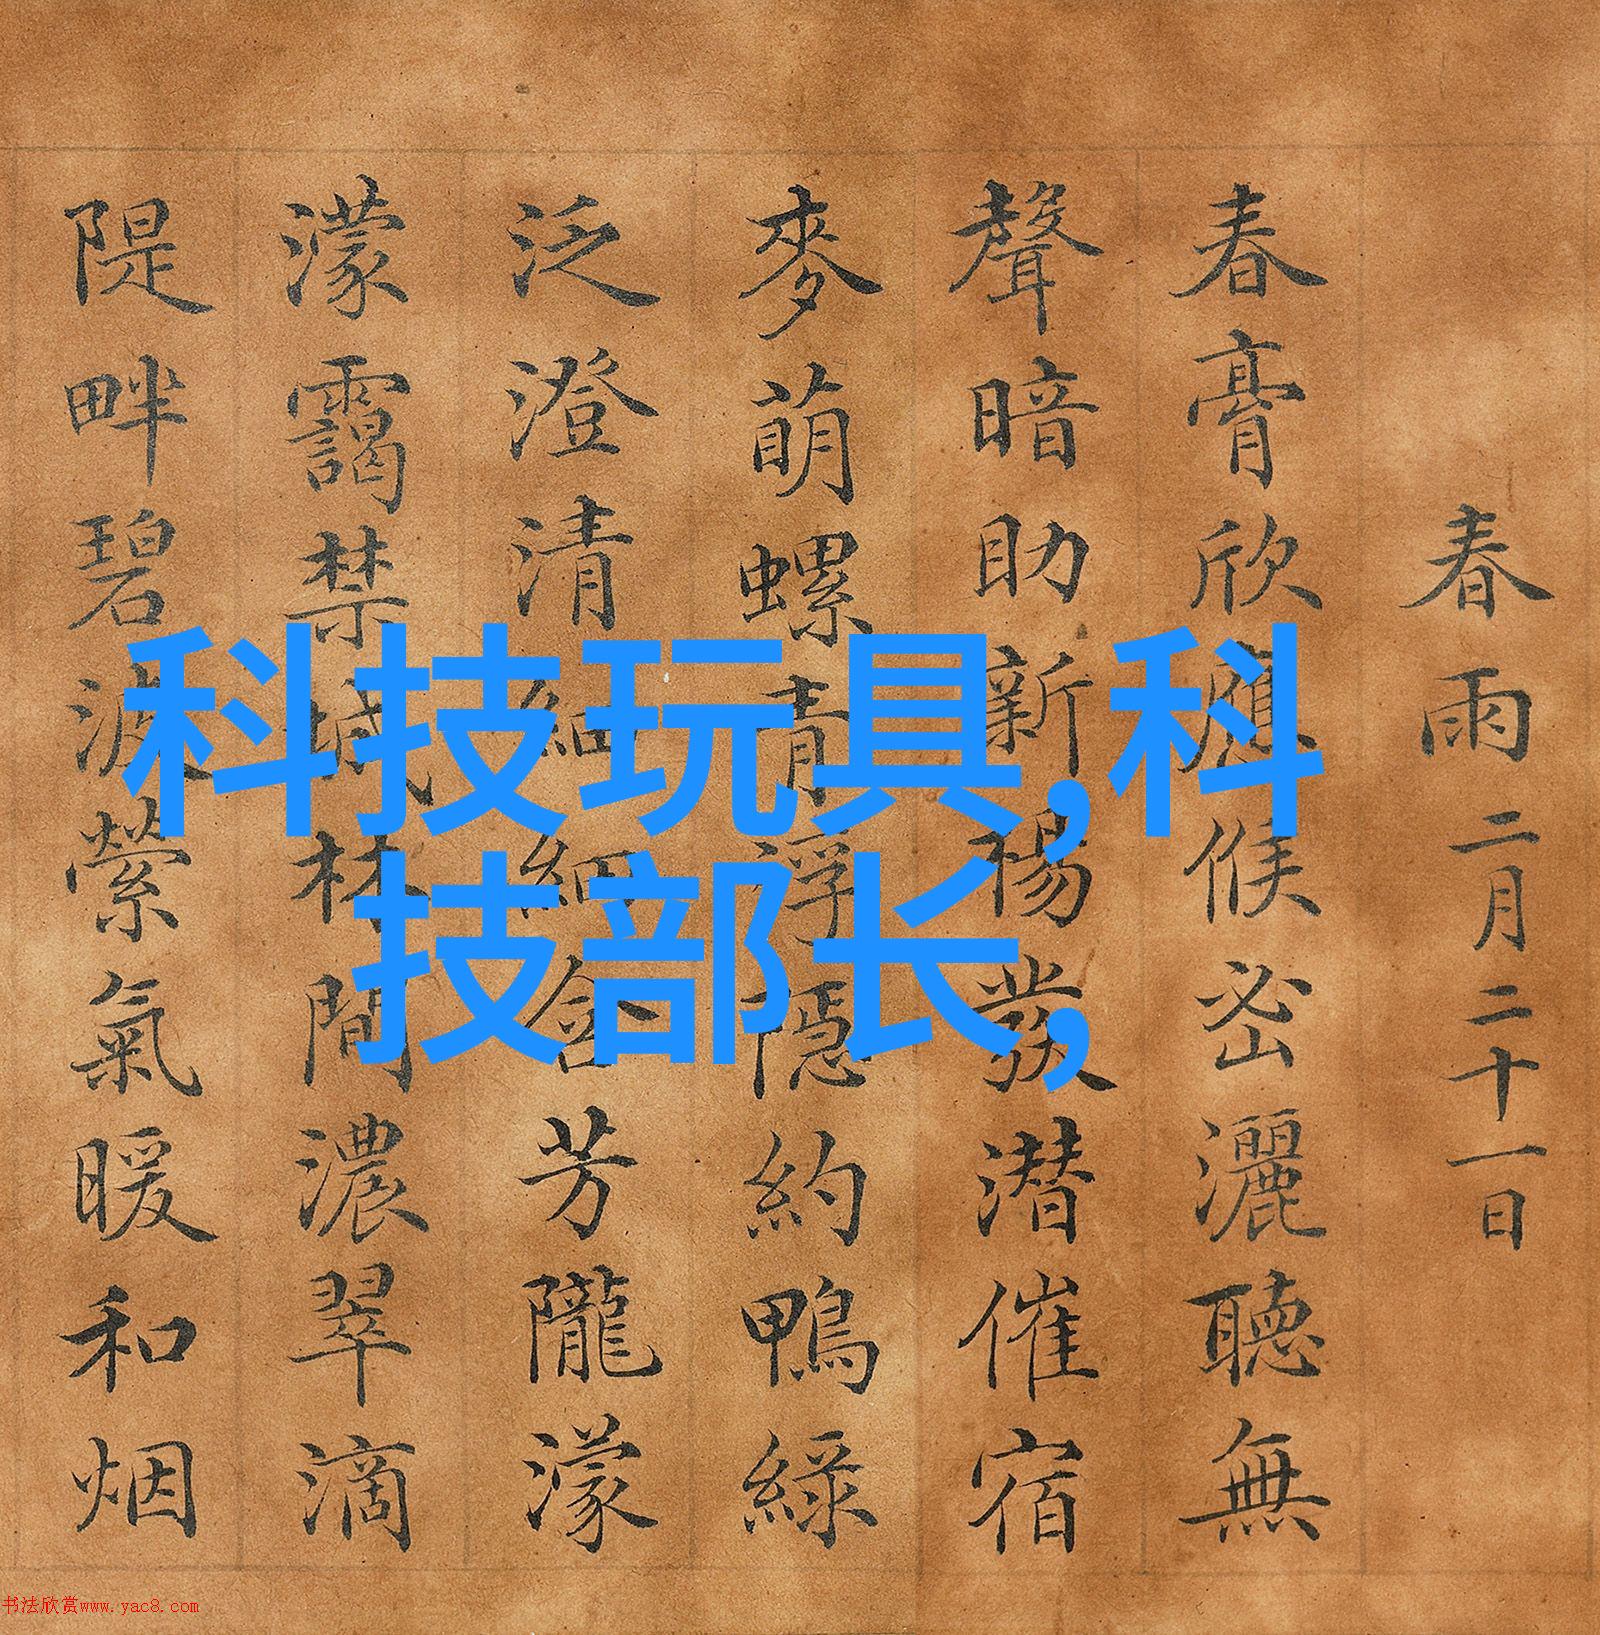 春雨 二月二十一日
春膏欣應候密灑聽無
聲暗助新陽發潜催宿
麥萌螺青浮隱約鴨綠
泛澄清細細含芳隴濛
濛靄禁城林間濃翠滴
隄畔碧波縈氣暖和烟
科技玩具,科
技部长,
书法欣赏www.yac8.com